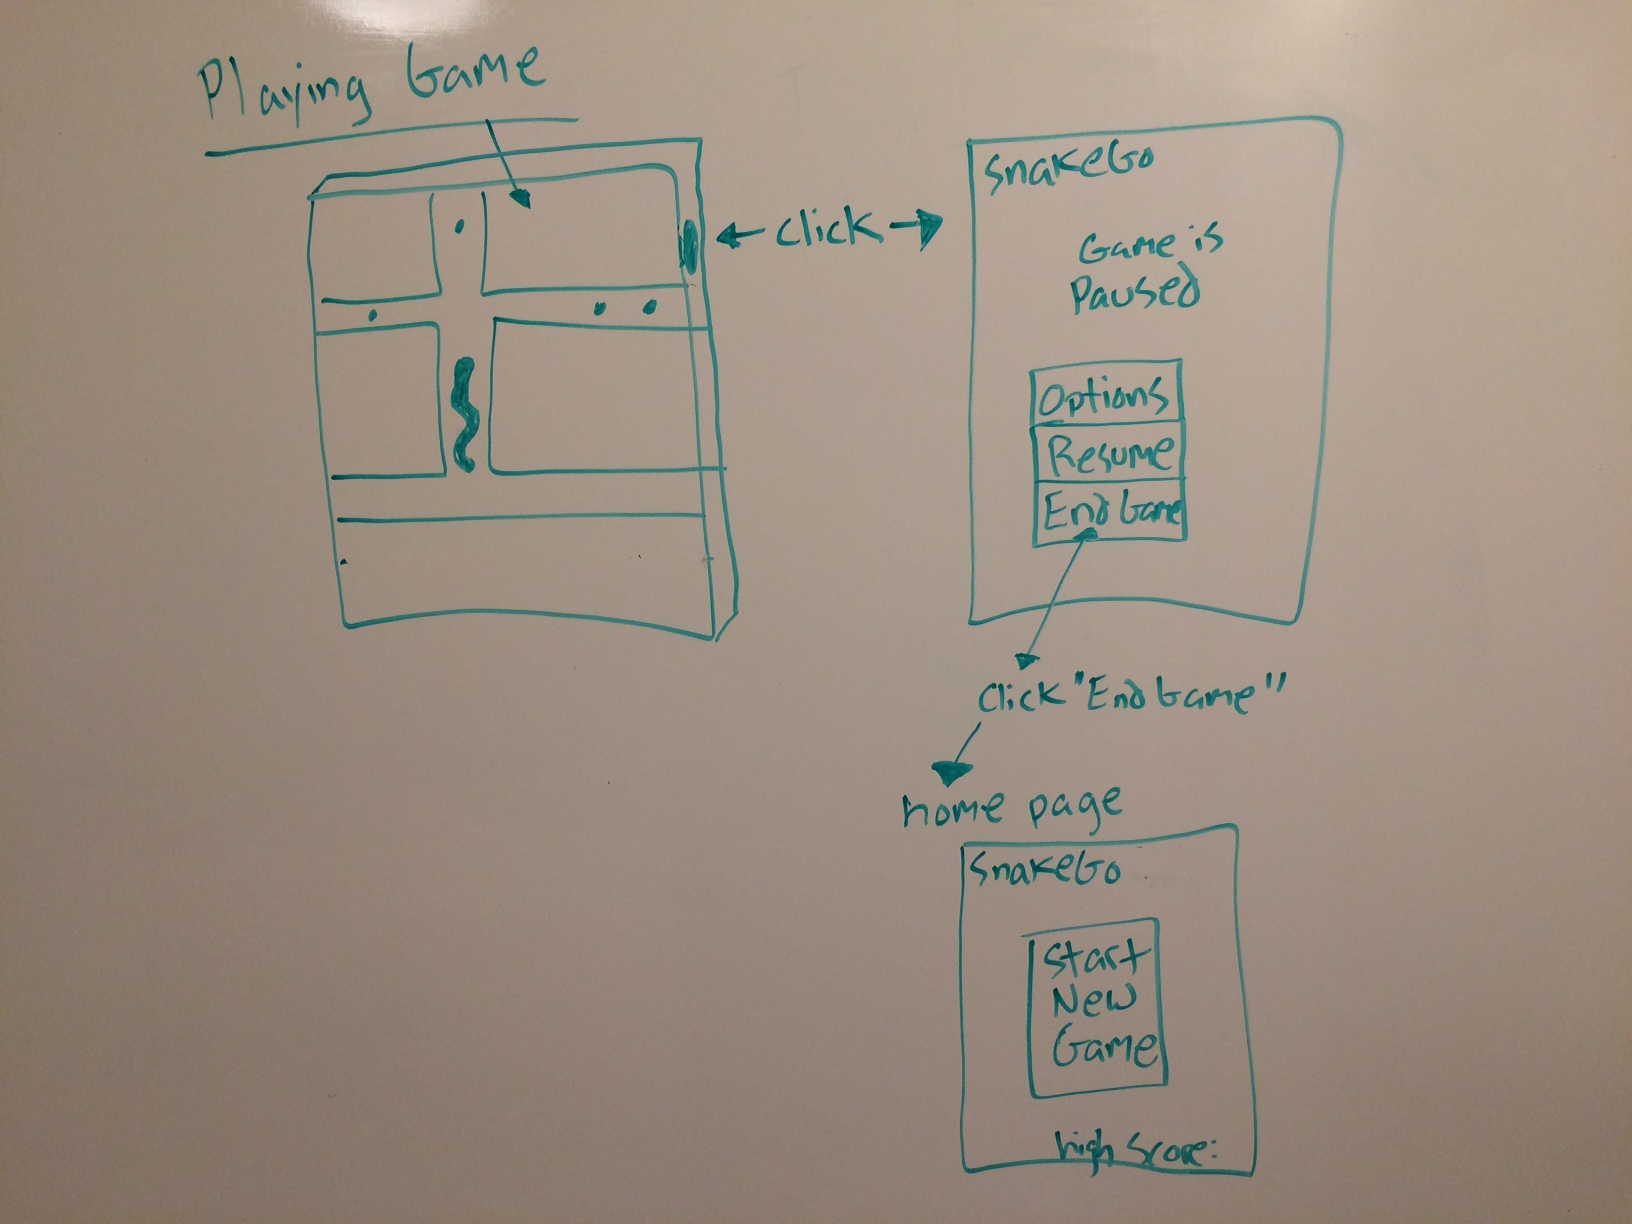 Playing Game
← Click →
SnakeGo
Game is
Paused
Options
Resume
End Game
Click "End Game"
home page
SnakeGo
Start
New
Game
high Score: